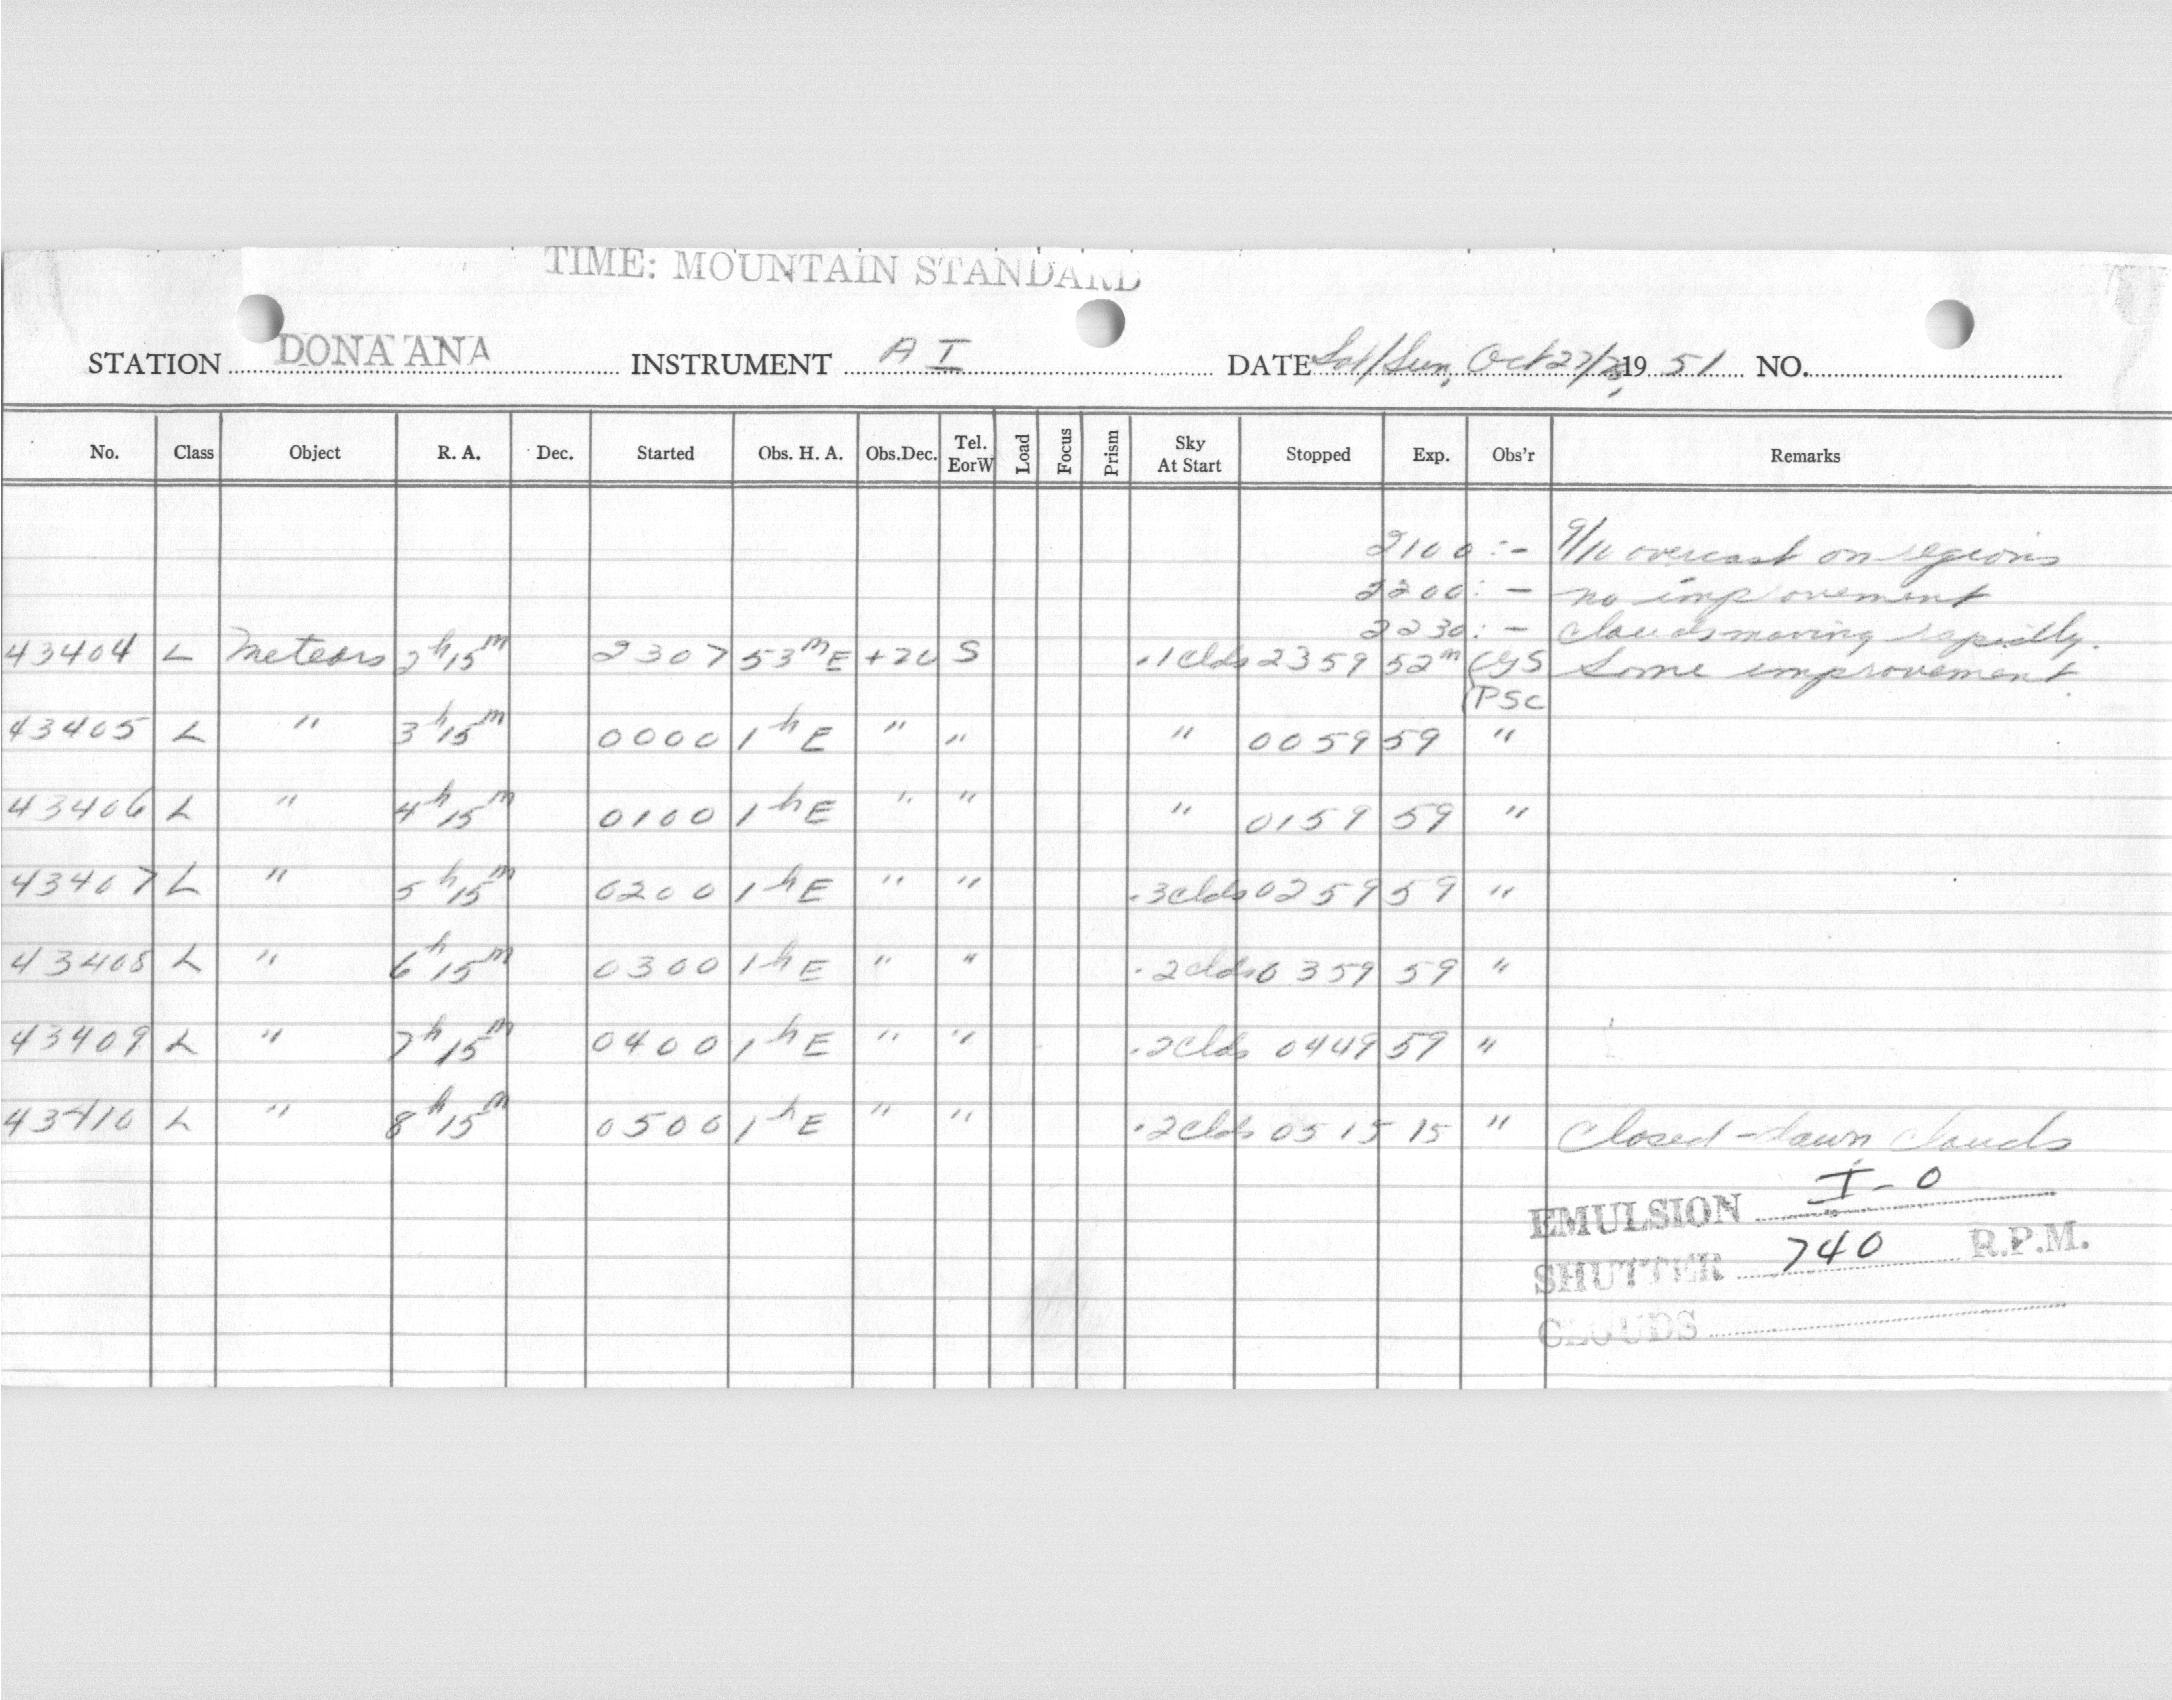 TIME: MOUNTAIN STANDARD
STATION DONA ANA INSTRUMENT A I DATE Sat/Sun, Oct 27/28, 19 51 NO.
No. Class Object R. A. Dec. Started Obs. H. A. Obs.Dec. Tel. EorW Load Focus Prism Sky At Start Stopped Exp. Obs'r Remarks
2100:- 9/10 overcast on regions
2200:- no improvement
2230:- clouds moving rapidly.
43404 L Meteors 2h15m 2307 53mE +20 S .1 clds 2359 52m GS Some improvement.
PSC
43405 L " 3h15m 0000 1hE " " " 0059 59 "
43406 L " 4h15m 0100 1hE " " " 0159 59 "
43407 L " 5h15m 0200 1hE " " .3 clds 0259 59 "
43408 L " 6h15m 0300 1hE " " .2 clds 0359 59 "
43409 L " 7h15m 0400 1hE " " .2 Clds 0449 59 "
43410 L " 8h15m 0500 1hE " " .2 Clds 0515 15 " Closed - dawn clouds
EMULSION I-0
SHUTTER 740 R.P.M.
CLOUDS